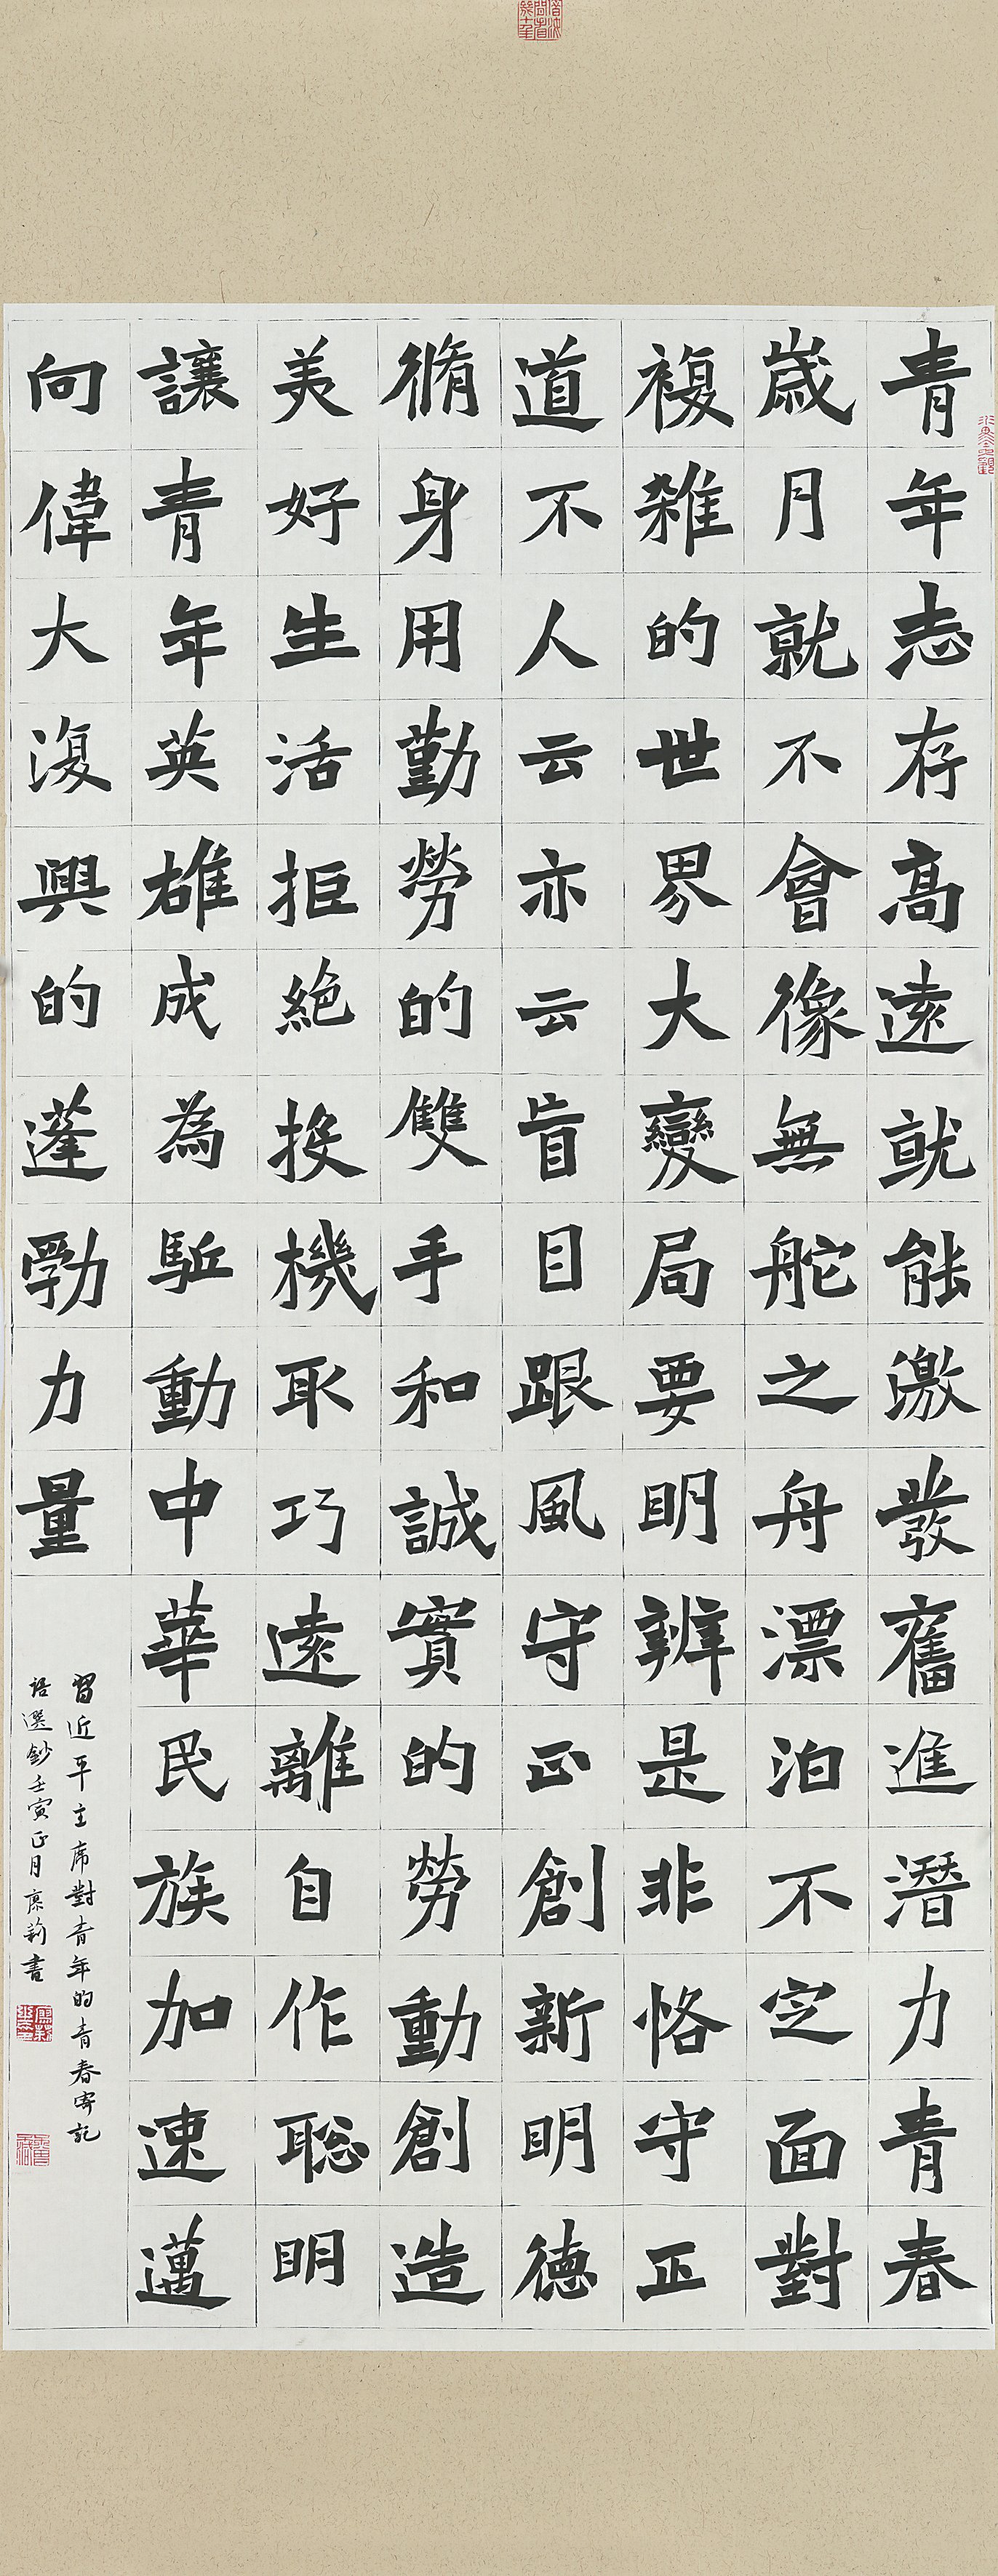 青年志存高遠就能激發奮進潛力青春
歲月就不會像無舵之舟漂泊不定面對
複雜的世界大變局要明辨是非恪守正
道不人云亦云盲目跟風守正創新明德
脩身用勤勞的雙手和誠實的勞動創造
美好生活拒絕投機取巧遠離自作聰明
讓青年英雄成為驅動中華民族加速邁
向偉大復興的蓬勃力量
習近平主席對青年的青春寄託
語選鈔壬寅正月 莉書